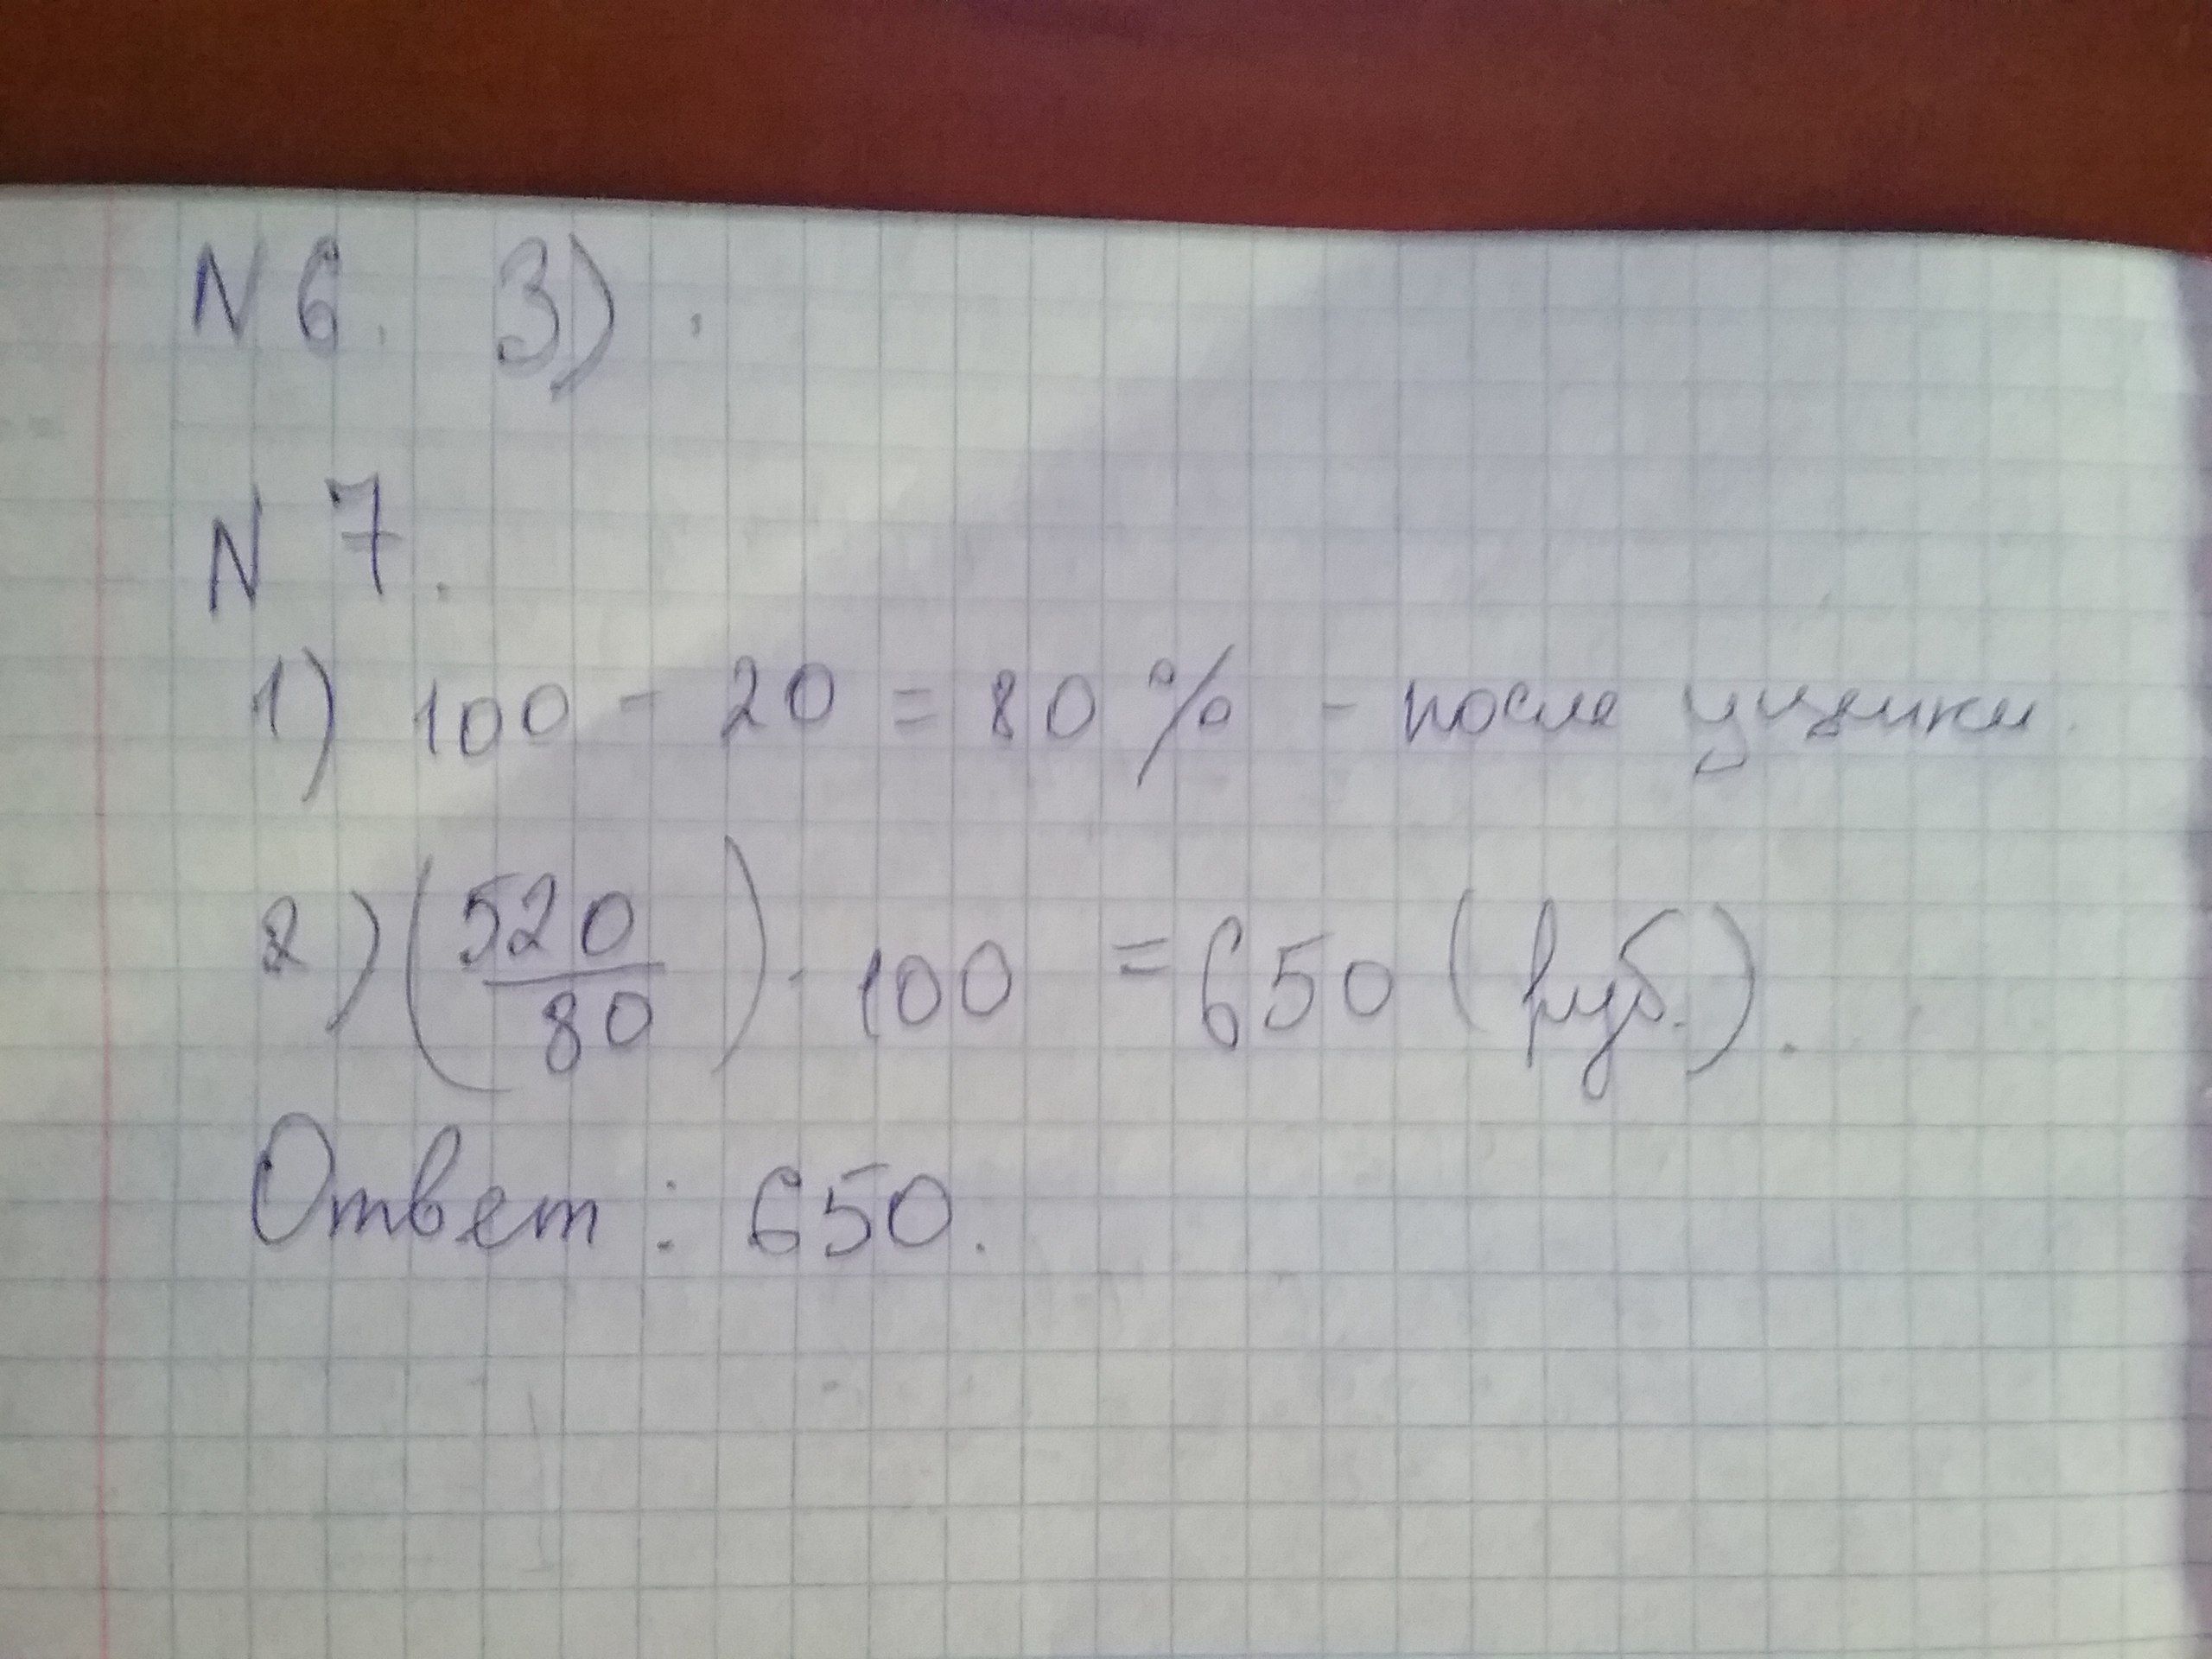 N 6. 3).
N 7.
1) 100 - 20 = 80 % - после уценки.
2) (520/80) · 100 = 650 (руб.).
Ответ: 650.